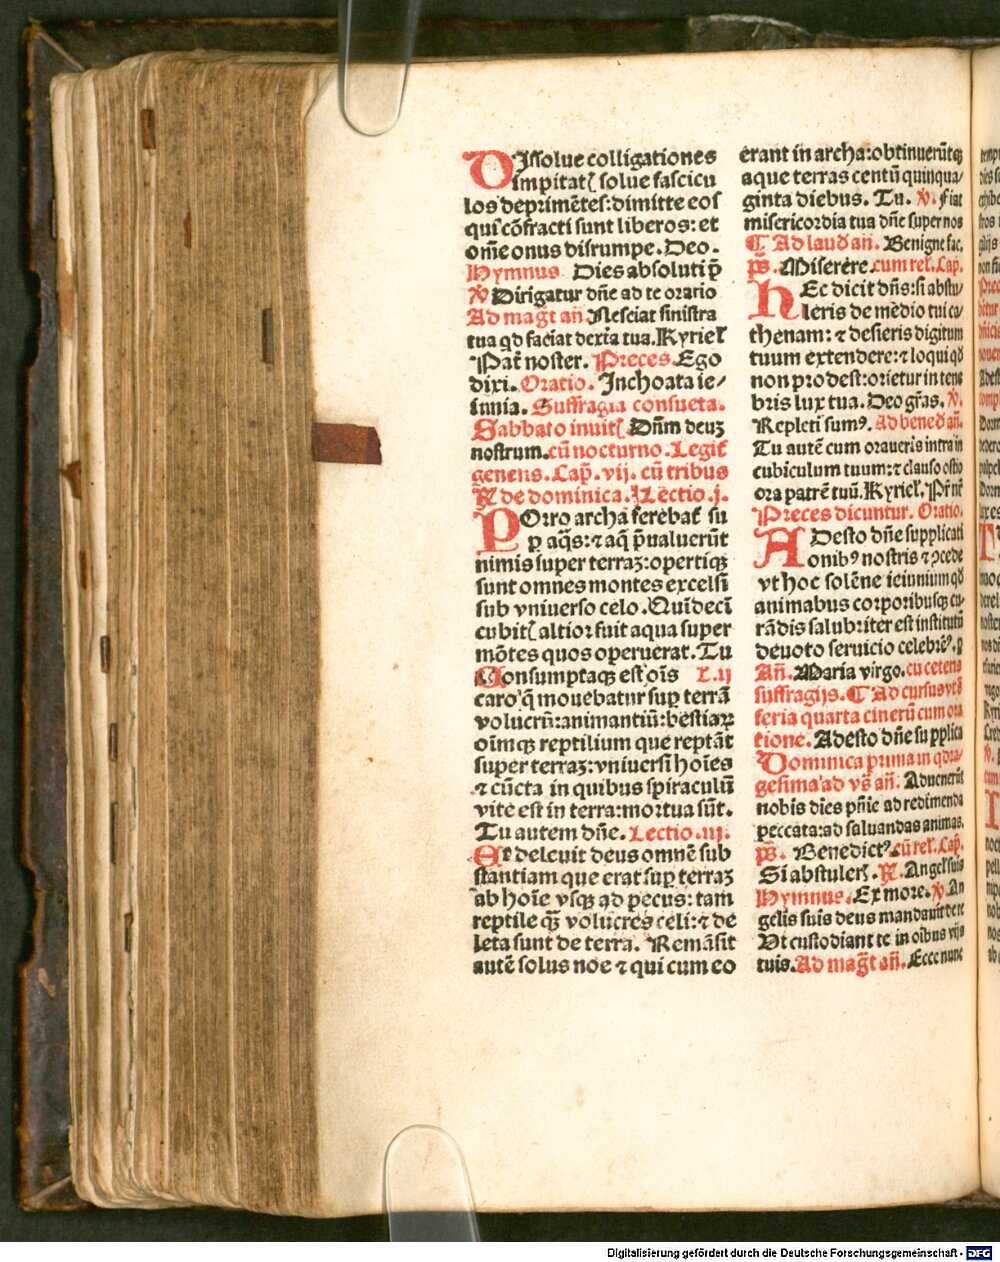 DIssolue colligationes
impitatꝭ solue fascicu
los deprimētes: dimitte eos
qui cōfracti sunt liberos: et
om̄e onus disrumpe. Deo.
Hymnus Dies absoluti p̄
℣ Dirigatur dn̄e ad te oratio
Ad magt̄ an̄ Nesciat sinistra
tua qd faciat dext̄a tua. Kyriel̄
Pat̄ noster. Preces. Ego
dixi. Oratio. Inchoata ie/
iunia. Suffragia consueta.
Sabbato inuitꝭ Dn̄m deuꝫ
nostrum. cū nocturno. Legit̄
genesis. Cap̄. vij. cū tribus
℟ de dominica. Lectio .j.
POrro archa ferebat̄ su
ꝑ aq̄s: ⁊ aq̄ p̄ualuerūt
nimis super terraꝫ: opertiqꝫ
sunt omnes montes excelsi
sub vniuerso celo. Quīdecī
cubitꝭ altior fuit aqua super
mōtes quos operuerat. Tu
Consumptaqꝫ est oīs L. ij
caro q̄ mouebatur sup terrā
volucrū: animantiū: bestiaꝝ
oīmqꝫ reptilium que reptāt
super terraꝫ: vniuersi hoīes
⁊ cūcta in quibus spiraculū
vite est in terra: mortua sūt.
Tu autem dn̄e. Lectio .iij.
Et deleuit deus omnē sub
stantiam que erat sup terraꝫ
ab hoīe vsqꝫ ad pecus: tam
reptile qꝫ̄ volucres celi: ⁊ de
leta sunt de terra. Remāsit
autē solus noe ⁊ qui cum eo
erant in archa: obtinuerūtqꝫ
aque terras centū quinqua/
ginta diebus. Tu. ℣. Fiat
misericordia tua dn̄e super nos
¶ Ad laud̄ an̄. Benigne fac.
ps̄. Miserere. cum rel̄. Cap̄.
HEc dicit dn̄s: si abstu/
leris de medio tui ca/
thenam: ⁊ desieris digitum
tuum extendere: ⁊ loqui qd̄
non prodest: orietur in tene
bris lux tua. Deo gr̄as. ℣.
Repleti sumꝰ. Ad bened̄ an̄.
Tu autē cum oraueris intra in
cubiculum tuum: ⁊ clauso ostio
ora patrē tuū. Kyriel̄. Pr̄ nr̄
Preces dicuntur. Oratio.
ADesto dn̄e supplicati
onibꝰ nostris ⁊ ꝯcede
vt hoc solēne ieiunium qd̄
animabus corporibusqꝫ cu/
rādis salubriter est institutū
deuoto seruicio celebremꝰ. ꝑ
An̄. Maria virgo. cu ceteris
suffragijs. ¶ Ad cursus vt s̄
feria quarta cinerū cum ora
tione. Adesto dn̄e supplica
Dominica prima in qdra/
gesima ad vs̄ an̄. Aduenerūt
nobis dies pn̄ie ad redimenda
peccata: ad saluandas animas.
ps̄. Benedictꝰ. cū rel̄. Cap̄.
Si abstulerꝭ. ℟. Angelꝭ suis
Hymnus. Ex more. ℣. An
gelis suis deus mandauit de te
Vt custodiant te in oībus vijs
tuis. Ad magt̄ an̄. Ecce nunc
Digitalisierung gefördert durch die Deutsche Forschungsgemeinschaft - DFG